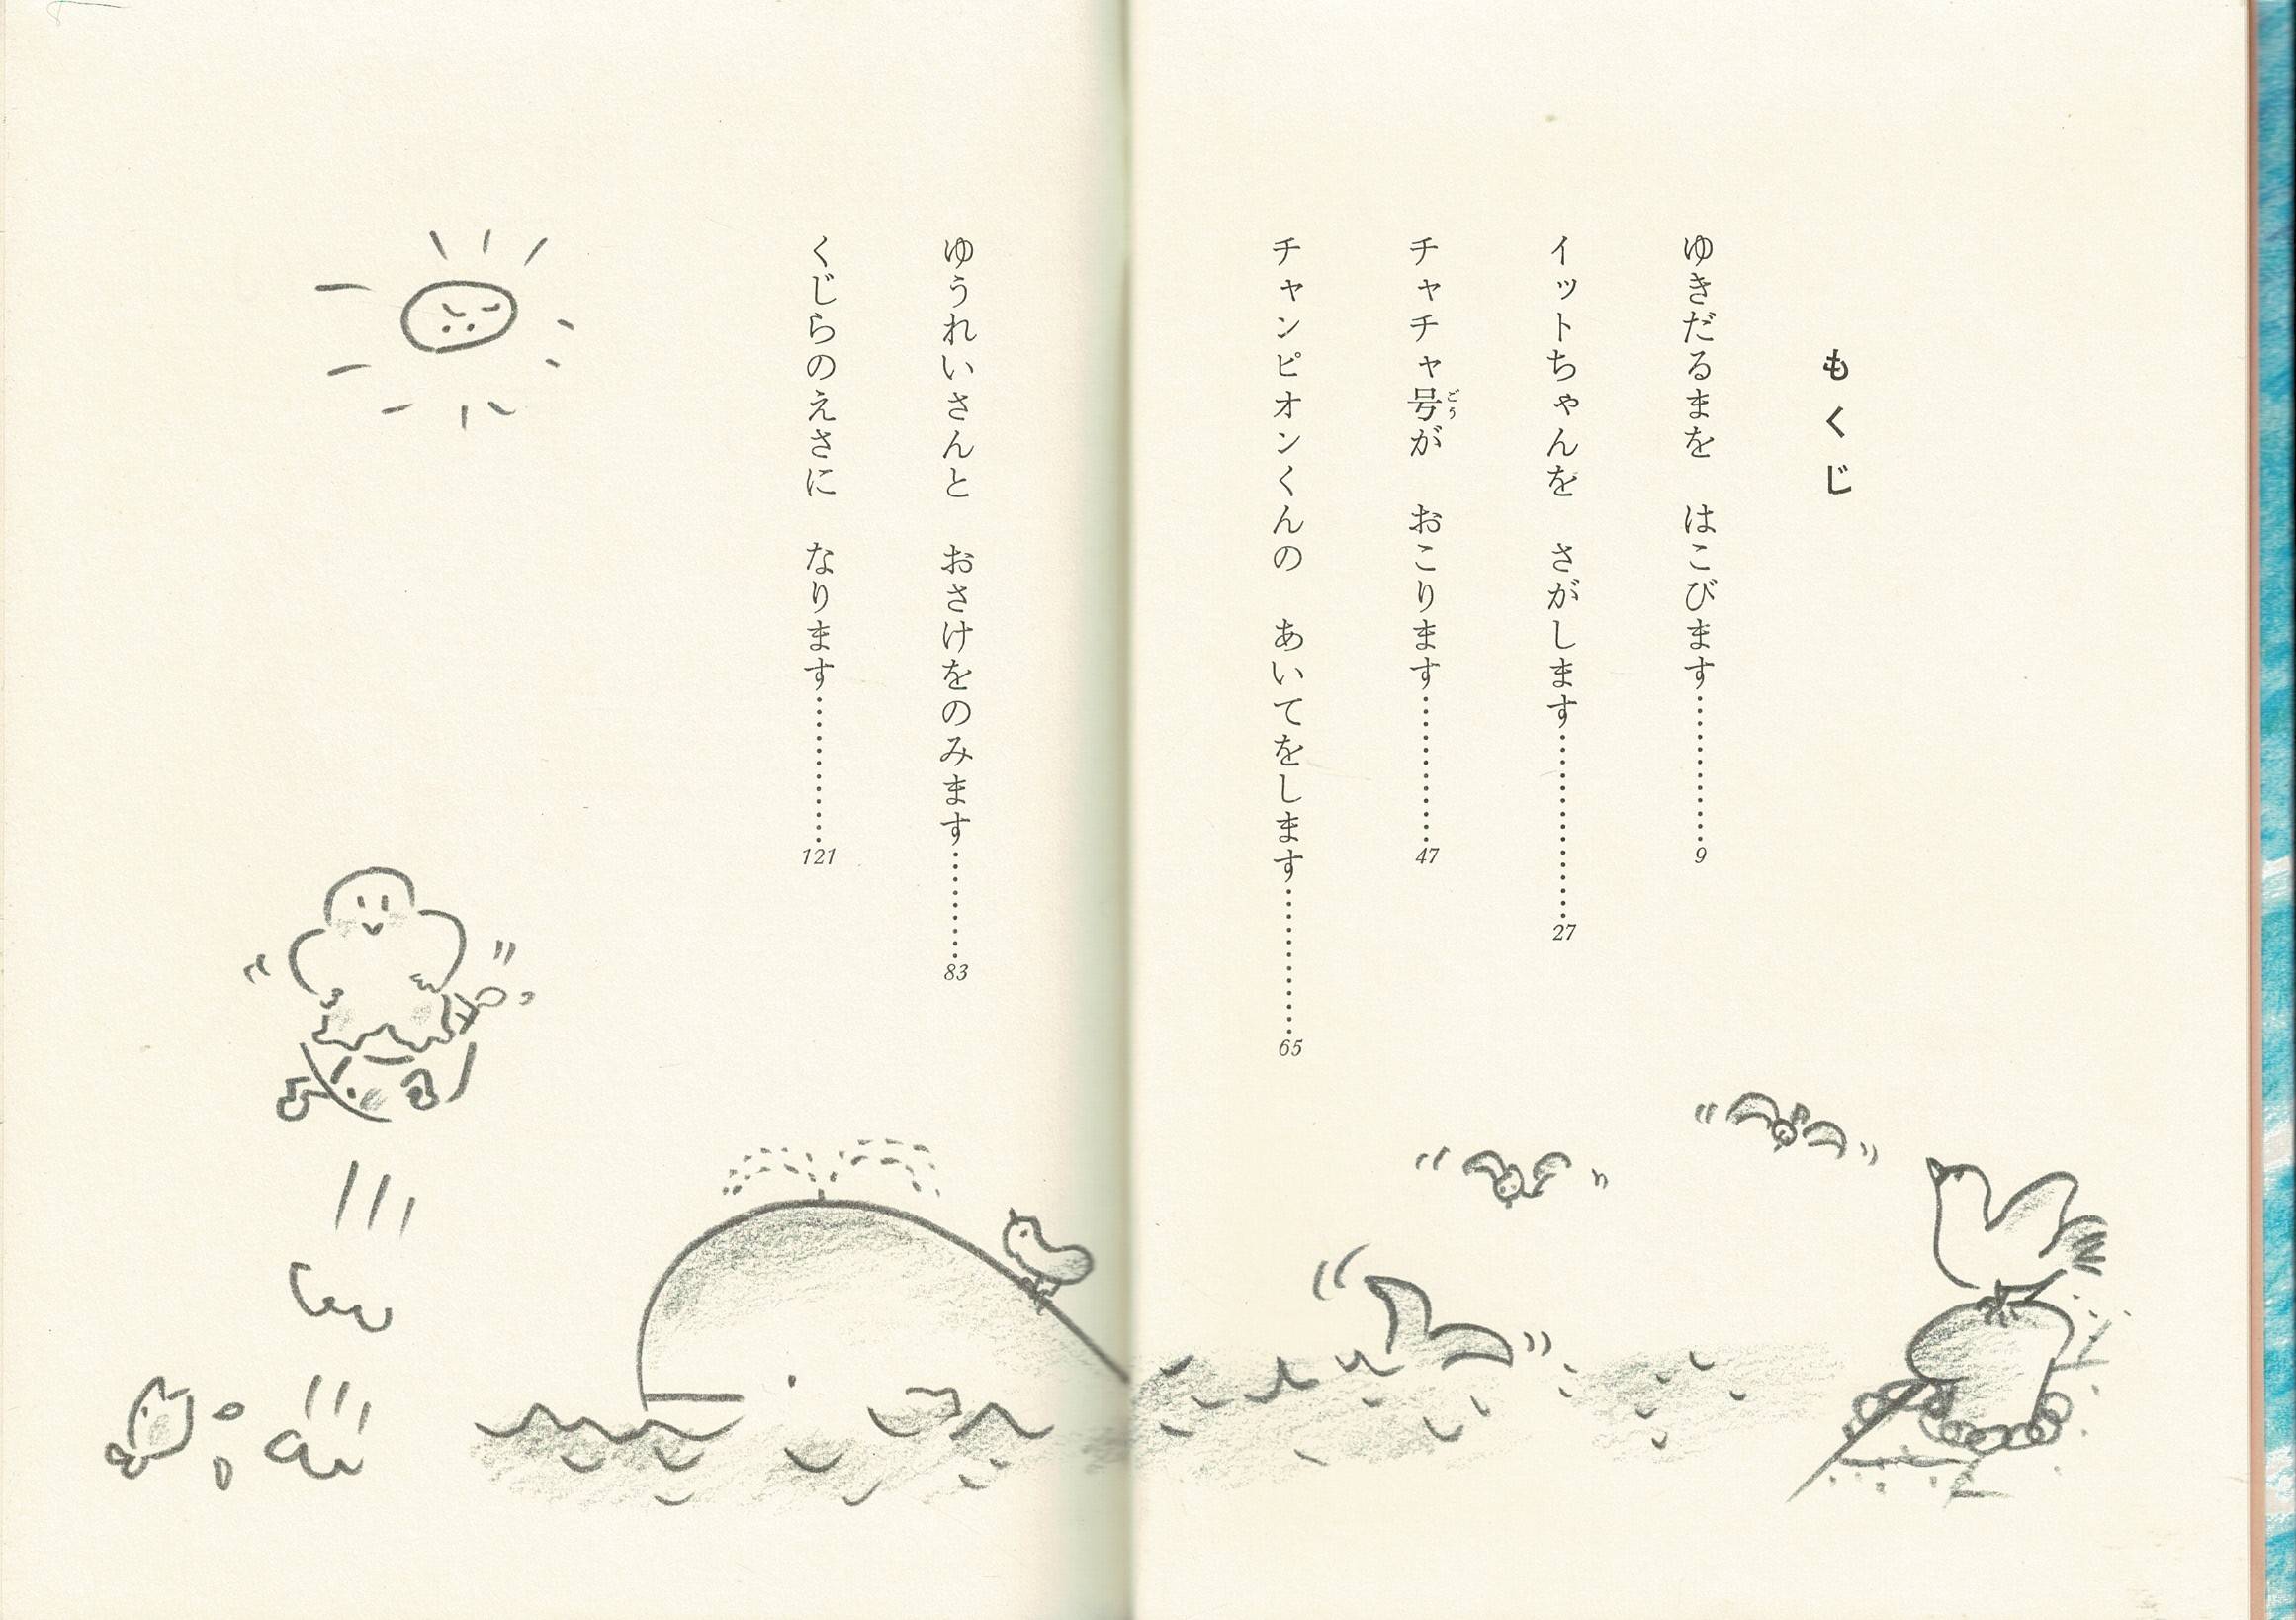 もくじ
ゆきだるまを　はこびます…………9
イットちゃんを　さがします…………27
チャチャ号が　おこります…………47
ごう
チャンピオンくんの　あいてをします…………65
ゆうれいさんと　おさけをのみます…………83
くじらのえさに　なります…………121